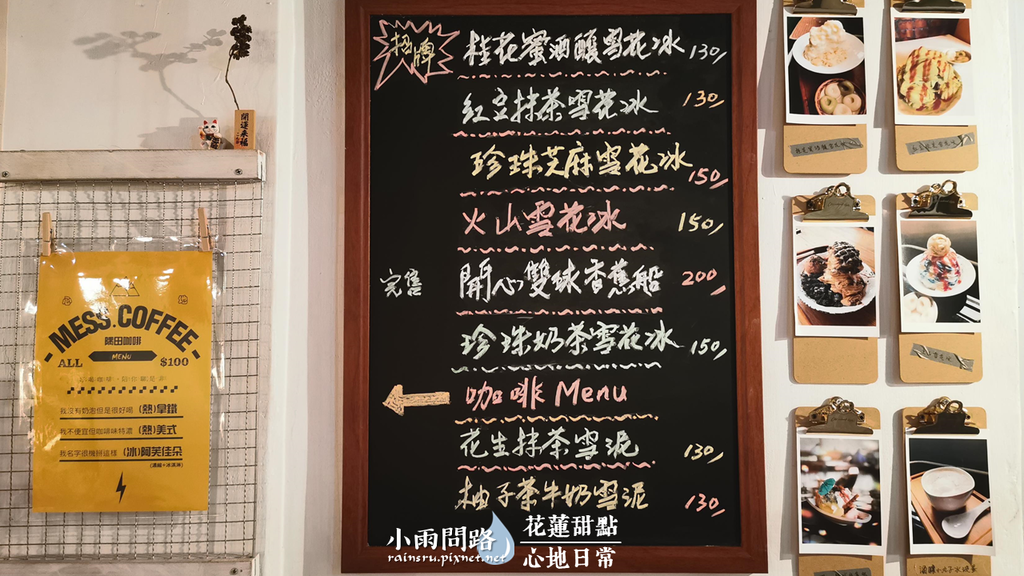 開運来福
MESS.COFFEE
隅田咖啡
MENU
ALL $100
我沒有奶泡但是很好喝 (熱)拿鐵
我不使壹但咖啡味特濃 (熱)美式
我名字很機掰這樣 (冰)阿芙佳朵
(濃縮+冰淇淋)
招牌
桂花蜜酒釀雪花冰 130/
紅豆抹茶雪花冰 130/
珍珠芝麻雪花冰 150/
火山雪花冰 150/
完售 開心雙球香蕉船 200/
珍珠奶茶雪花冰 150/
咖啡 Menu
花生抹茶雪泥 130/
柚子茶牛奶雪泥 130/
小雨問路
rainsru.pixnet.net
花蓮甜點
心地日常